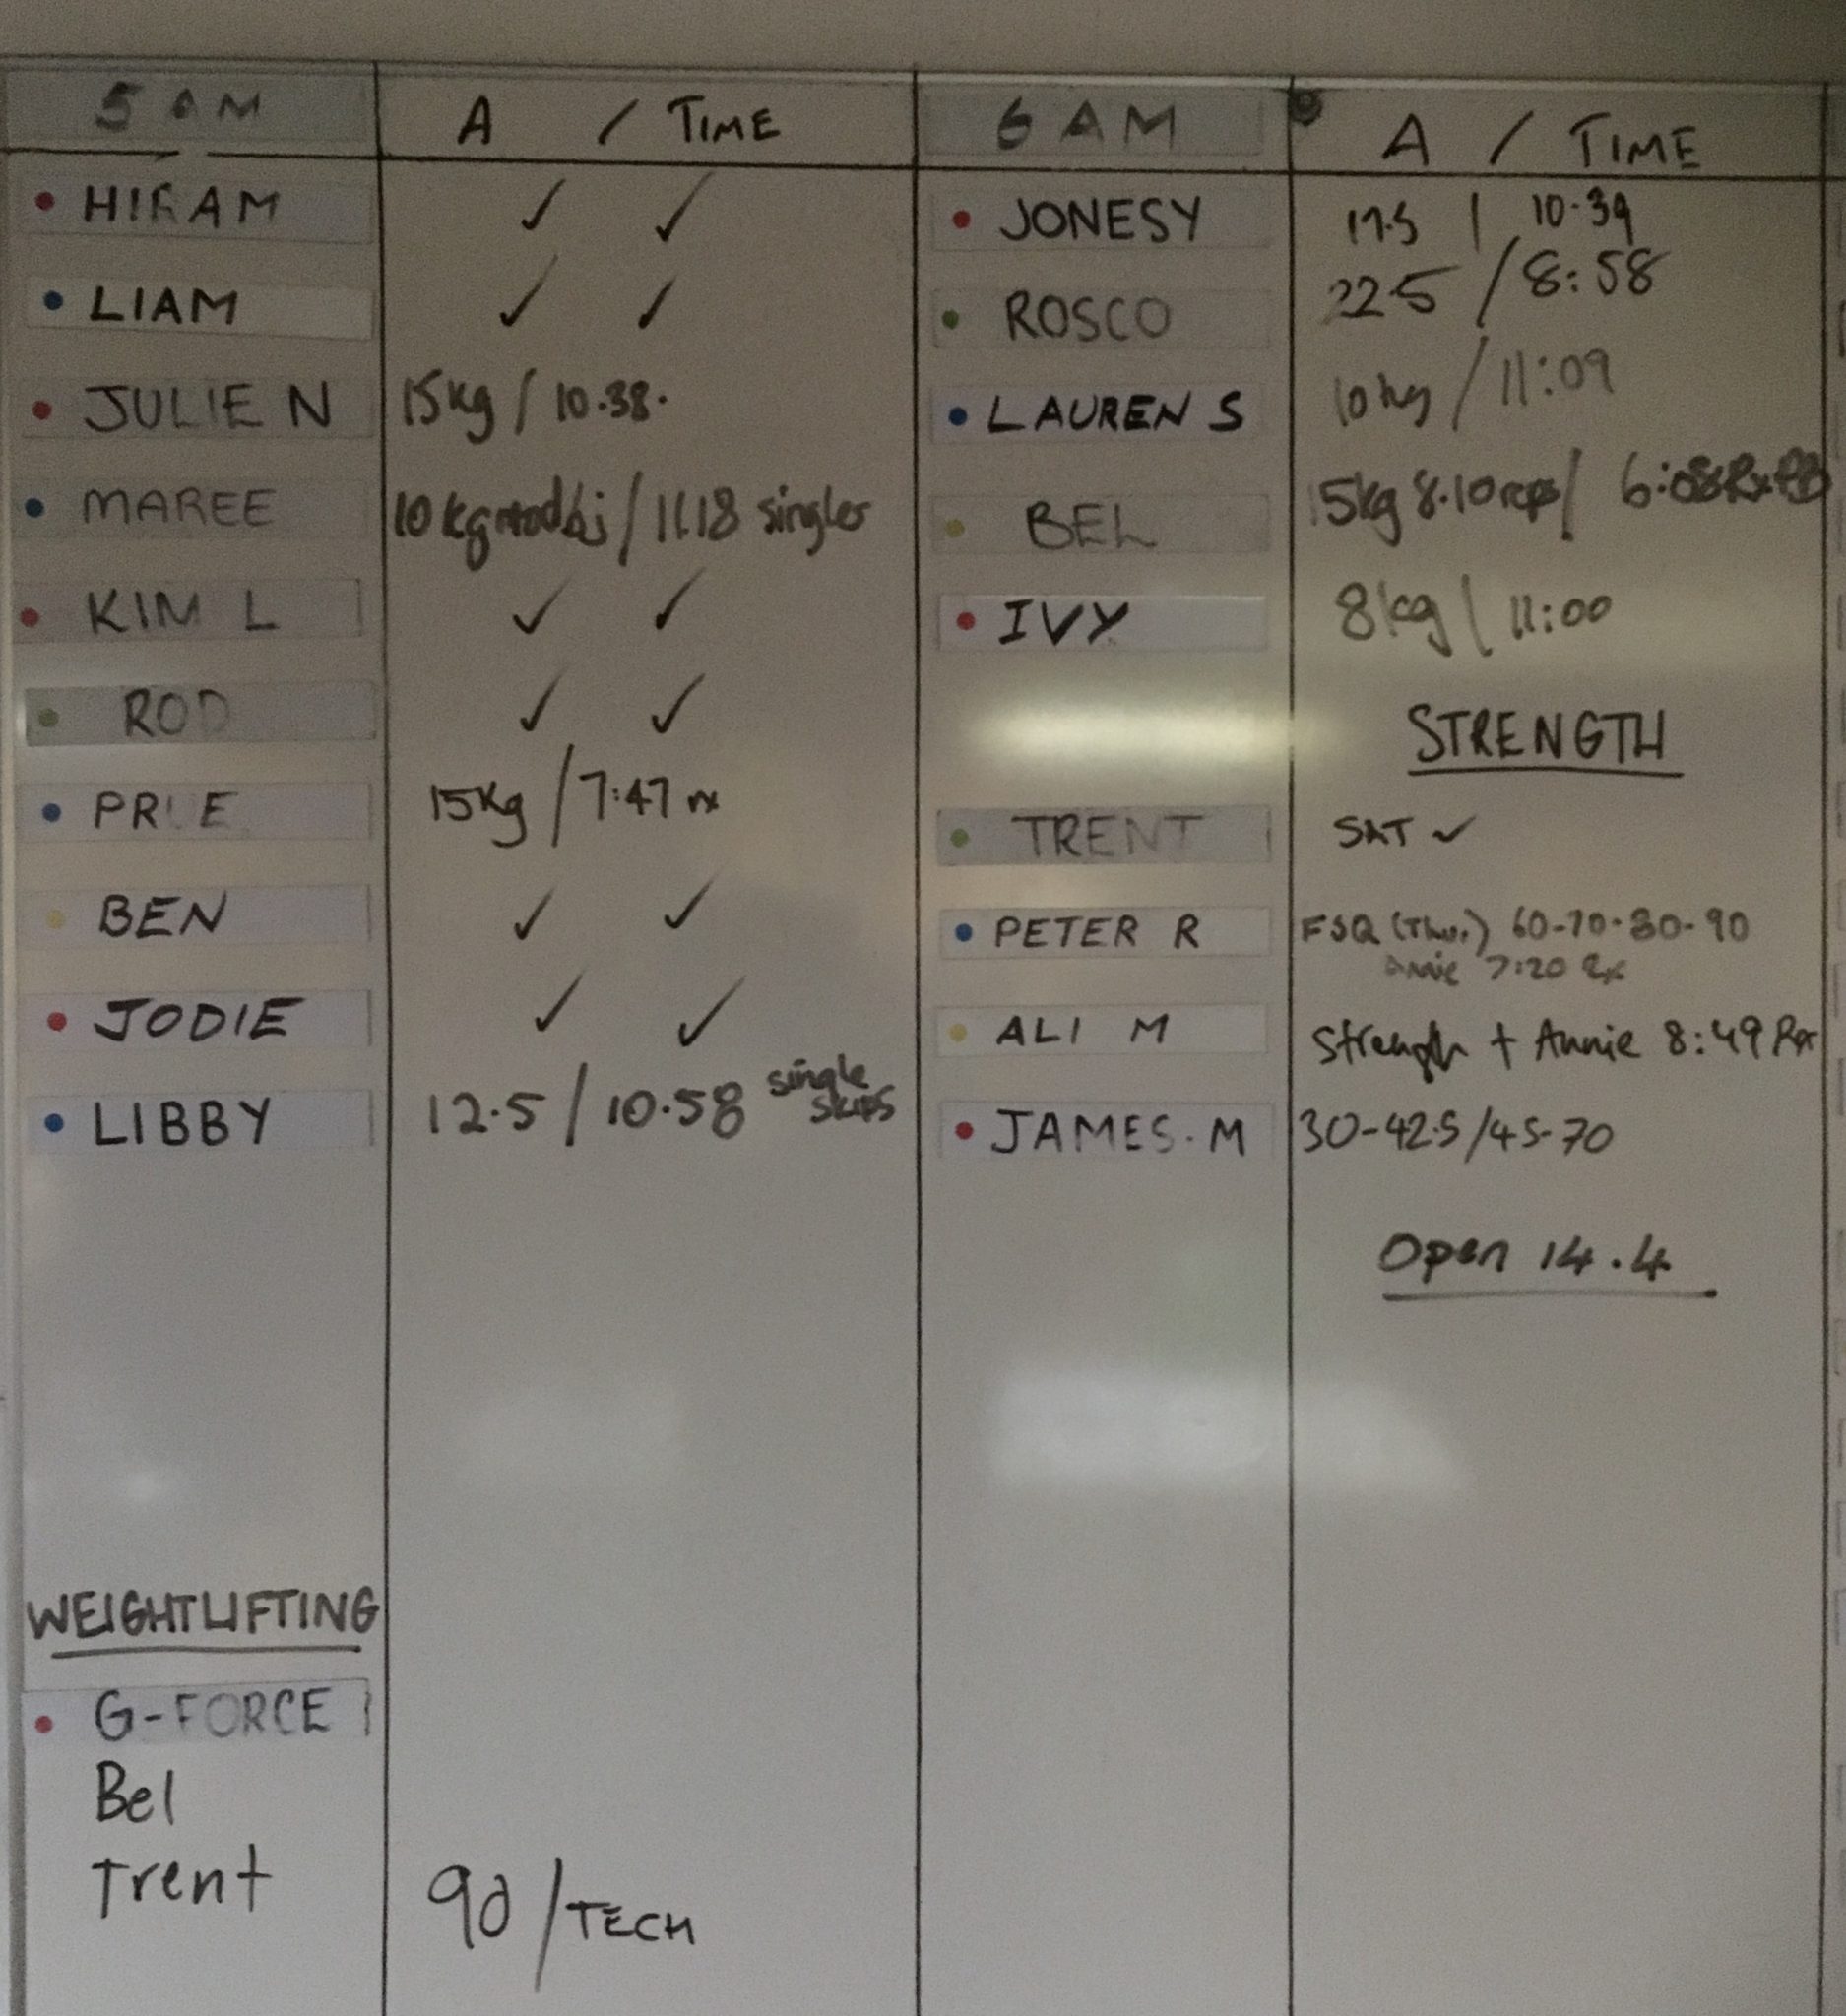 5 AM A / TIME
HIRAM ✓ ✓
LIAM ✓ ✓
JULIE N 15kg / 10.38.
MAREE 10 kg / 11.18 singles
KIM L ✓ ✓
ROD ✓ ✓
PRUE 15kg / 7:47 rx
BEN ✓ ✓
JODIE ✓ ✓
LIBBY 12.5 / 10.58 single skips
WEIGHTLIFTING
G-FORCE
Bel
Trent 90 / TECH
6 AM A / TIME
JONESY 17.5 | 10.39
ROSCO 22.5 / 8:58
LAUREN S 10 kg / 11:09
BEL 15kg 8.10 reps / 6:08 Rx PB
IVY 8kg | 11:00
STRENGTH
TRENT SAT ✓
PETER R FSQ (Thur.) 60-70-80-90
Annie 7:20 Rx
ALI M Strength + Annie 8:49 Rx
JAMES. M 30-42.5/45-70
Open 14.4